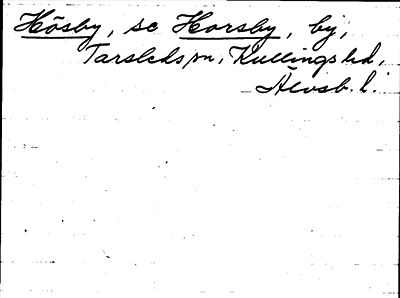 Hösby, se Horsby, by,
Tarsleds sn, Kullings hd,
Älvsb. l.